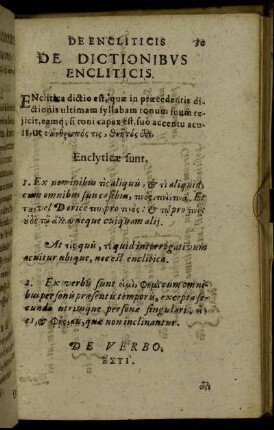 DE ENCLITICIS 30
DE DICTIONIBVS
ENCLITICIS.
ENclitica dictio est, quæ in præcedentis di-
ctionis ultimam syllabam tonum suum re-
jicit, eamq́; si toni capax est, suo accentu acu-
it, ut ἄνθρωπός τις, θνητός
Enclyticæ sunt.
1. Ex nominibus τὶς aliquis, & τὶ aliquid
cum omnibus suis casibus, Et
vel Doricè pro & pro
neque cuiquam alij.
At τίς quis, τί quid interrogativum
acuitur ubique, nec est enclitica.
2. Ex verbis sunt εἰμὶ, φημὶ cum omni-
bus personis præsentis temporis, excepta se-
cunda utriusque personâ singulari,
& quæ non inclinantur.
DE VERBO,
ΕΣΤΙ.